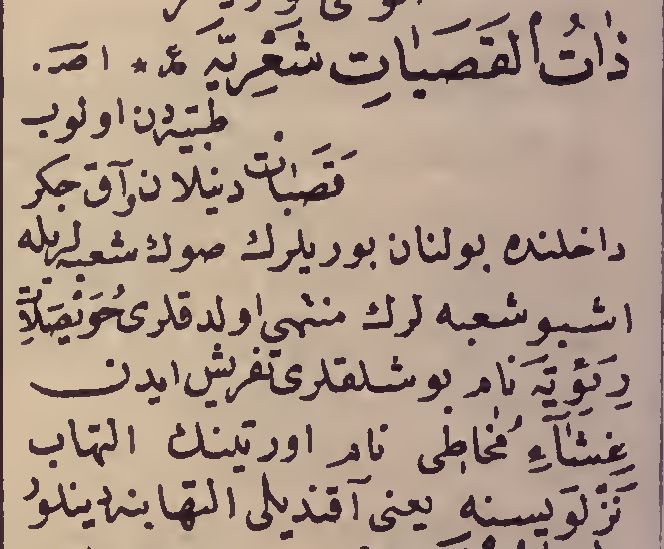 ذاتُ القَصَباتِ شَعْرِيَّه ع * اصـ.
طبّيه دن اولوب
قَصَبات دنیلان و آق جكر
داخلنده بولنان بوریلرك صوك شعبه لریله
اشبو شعبه لرك منتهی اولدقلری حُوَیْصَلاتِ
رِئَوِیَّه نام بوشلقلری تفریش ایدن
غِشَآءِ مُخاطِی نام اورتینك التهاب
نَزْلَوِیسنه یعنی آقندیلی التهابنه دینلور